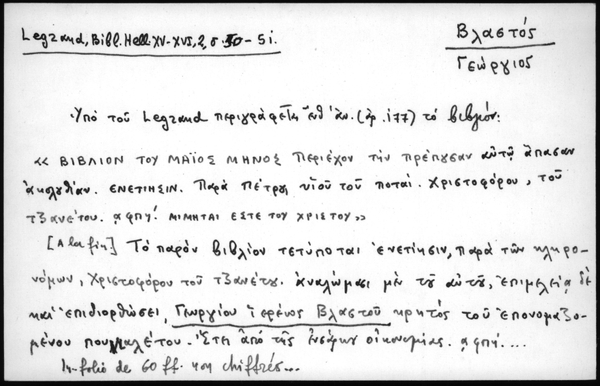 Legrand, Bibl. Hell. XV-XVI, 2, σ. 50-51.
Βλαστός
Γεώργιος
Ὑπό τοῦ Legrand περιγράφεται ἔνθ' ἀν. (ἀρ. 177) τό βιβλίον:
« ΒΙΒΛΙΟΝ ΤΟΥ ΜΑΪΟΣ ΜΗΝΟΣ περιέχον τήν πρέπουσαν αὐτῷ ἅπασαν
ἀκολυθίαν. ΕΝΕΤΙΗΣΙΝ. Παρά Πέτρου υἱοῦ τοῦ ποταί. Χριστοφόρου, τοῦ
τζανέτου. αφπή. ΜΙΜΗΤΑΙ ΕΣΤΕ ΤΟΥ ΧΡΙΣΤΟΥ»
[A la fin] Τό παρόν βιβλίον τετύπωται ἐνετίησιν, παρά τῶν κληρο-
νόμων, Χριστοφόρου τοῦ τζανέτου. ἀναλώμασι μέν τοῦ αὐτοῦ, ἐπιμελείᾳ δέ
καί ἐπιδιορθώσει, Γεωργίου ἱερέως Βλαστοῦ κρητός τοῦ ἐπονομαζο-
μένου. Ἔτει ἀπό τῆς ἐνσάρκου οἰκονομίας. αφπή....
In-folio de 60 ff. non chiffrés...